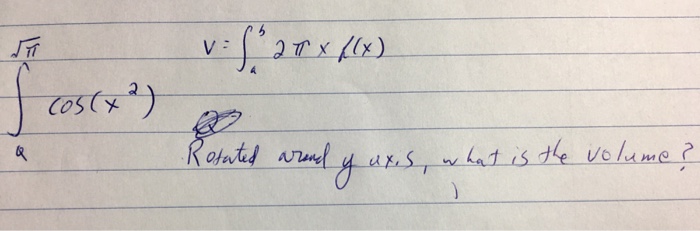 √π
∫ cos(x²)
a
V = ∫ₐᵇ 2πx f(x)
Rotated around y axis, what is the volume?